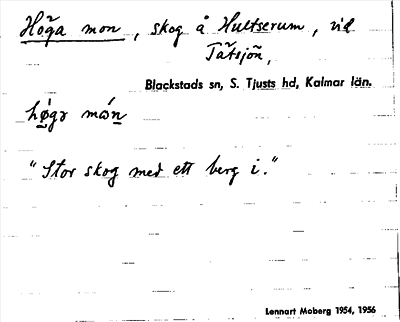 Höga mon, skog å Hultserum, vid
Tåtsjön,
Blackstads sn, S. Tjusts hd, Kalmar län.
hø̀gɘ món
"Stor skog med ett berg i."
Lennart Moberg 1954, 1956